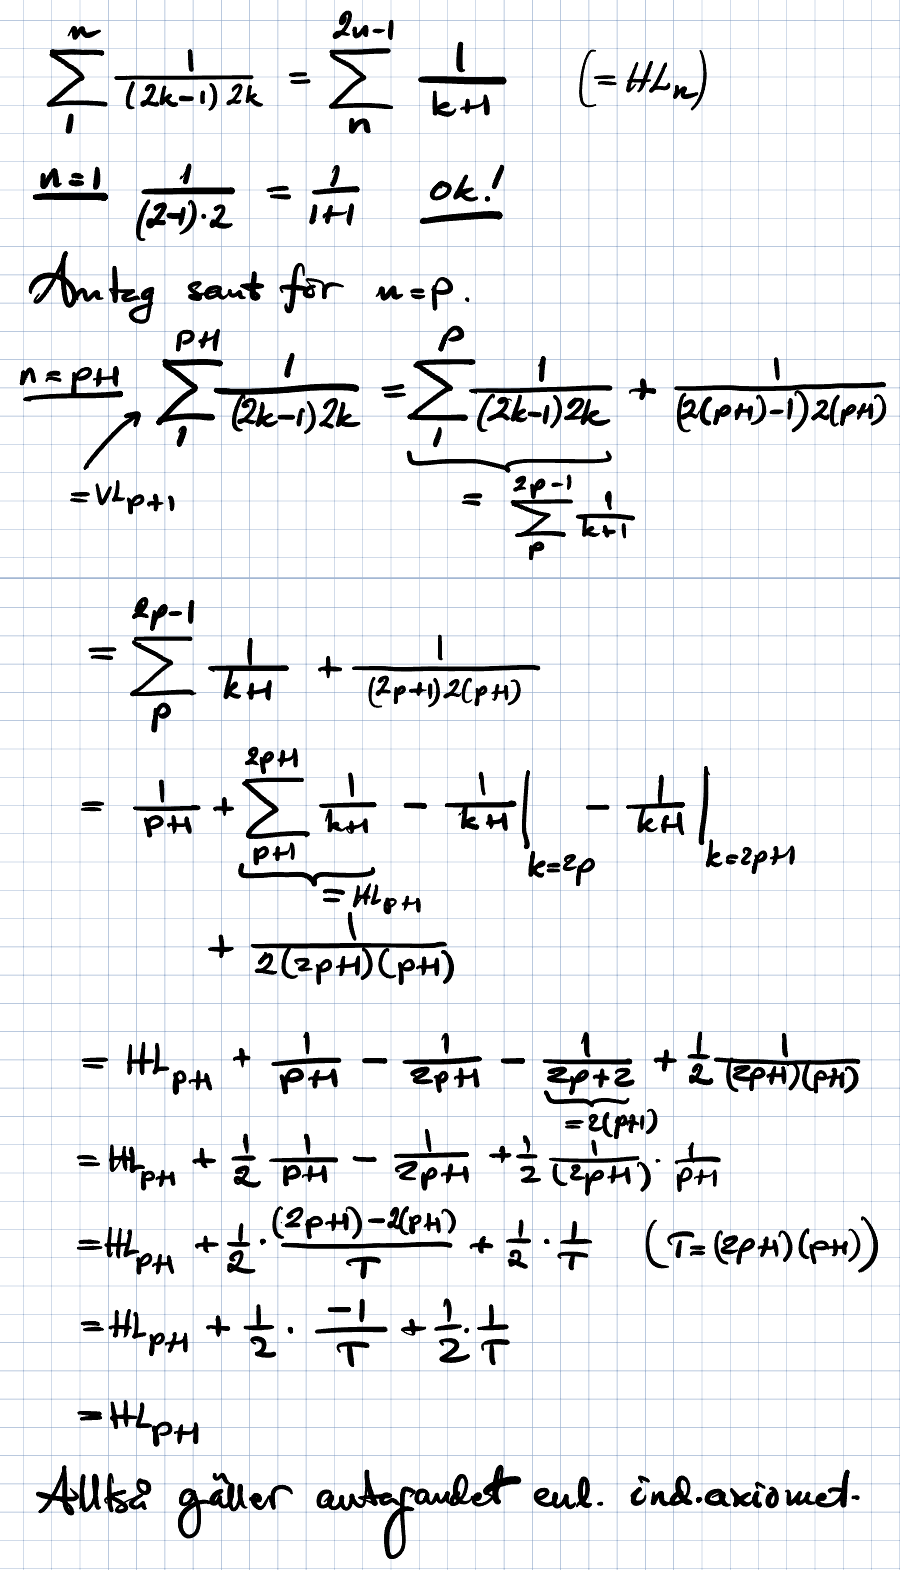 ∑_{1}^{n} 1/((2k-1)2k) = ∑_{n}^{2n-1} 1/(k+1) (= HL_n)
n=1 1/((2-1)·2) = 1/(1+1) ok!
Antag sant för n=p.
n=p+1 ∑_{1}^{p+1} 1/((2k-1)2k) = ∑_{1}^{p} 1/((2k-1)2k) + 1/((2(p+1)-1)2(p+1))
= VL_{p+1} = ∑_{p}^{2p-1} 1/(k+1)
= ∑_{p}^{2p-1} 1/(k+1) + 1/((2p+1)2(p+1))
= 1/(p+1) + ∑_{p+1}^{2p+1} 1/(k+1) - 1/(k+1)|_{k=2p} - 1/(k+1)|_{k=2p+1}
= HL_{p+1}
+ 1/(2(2p+1)(p+1))
= HL_{p+1} + 1/(p+1) - 1/(2p+1) - 1/(2p+2) + 1/2 1/((2p+1)(p+1))
= 2(p+1)
= HL_{p+1} + 1/2 1/(p+1) - 1/(2p+1) + 1/2 1/(2p+1) · 1/(p+1)
= HL_{p+1} + 1/2 · ((2p+1)-2(p+1))/T + 1/2 · 1/T (T=(2p+1)(p+1))
= HL_{p+1} + 1/2 · -1/T + 1/2 · 1/T
= HL_{p+1}
Alltså gäller antagandet enl. ind.axiomet.